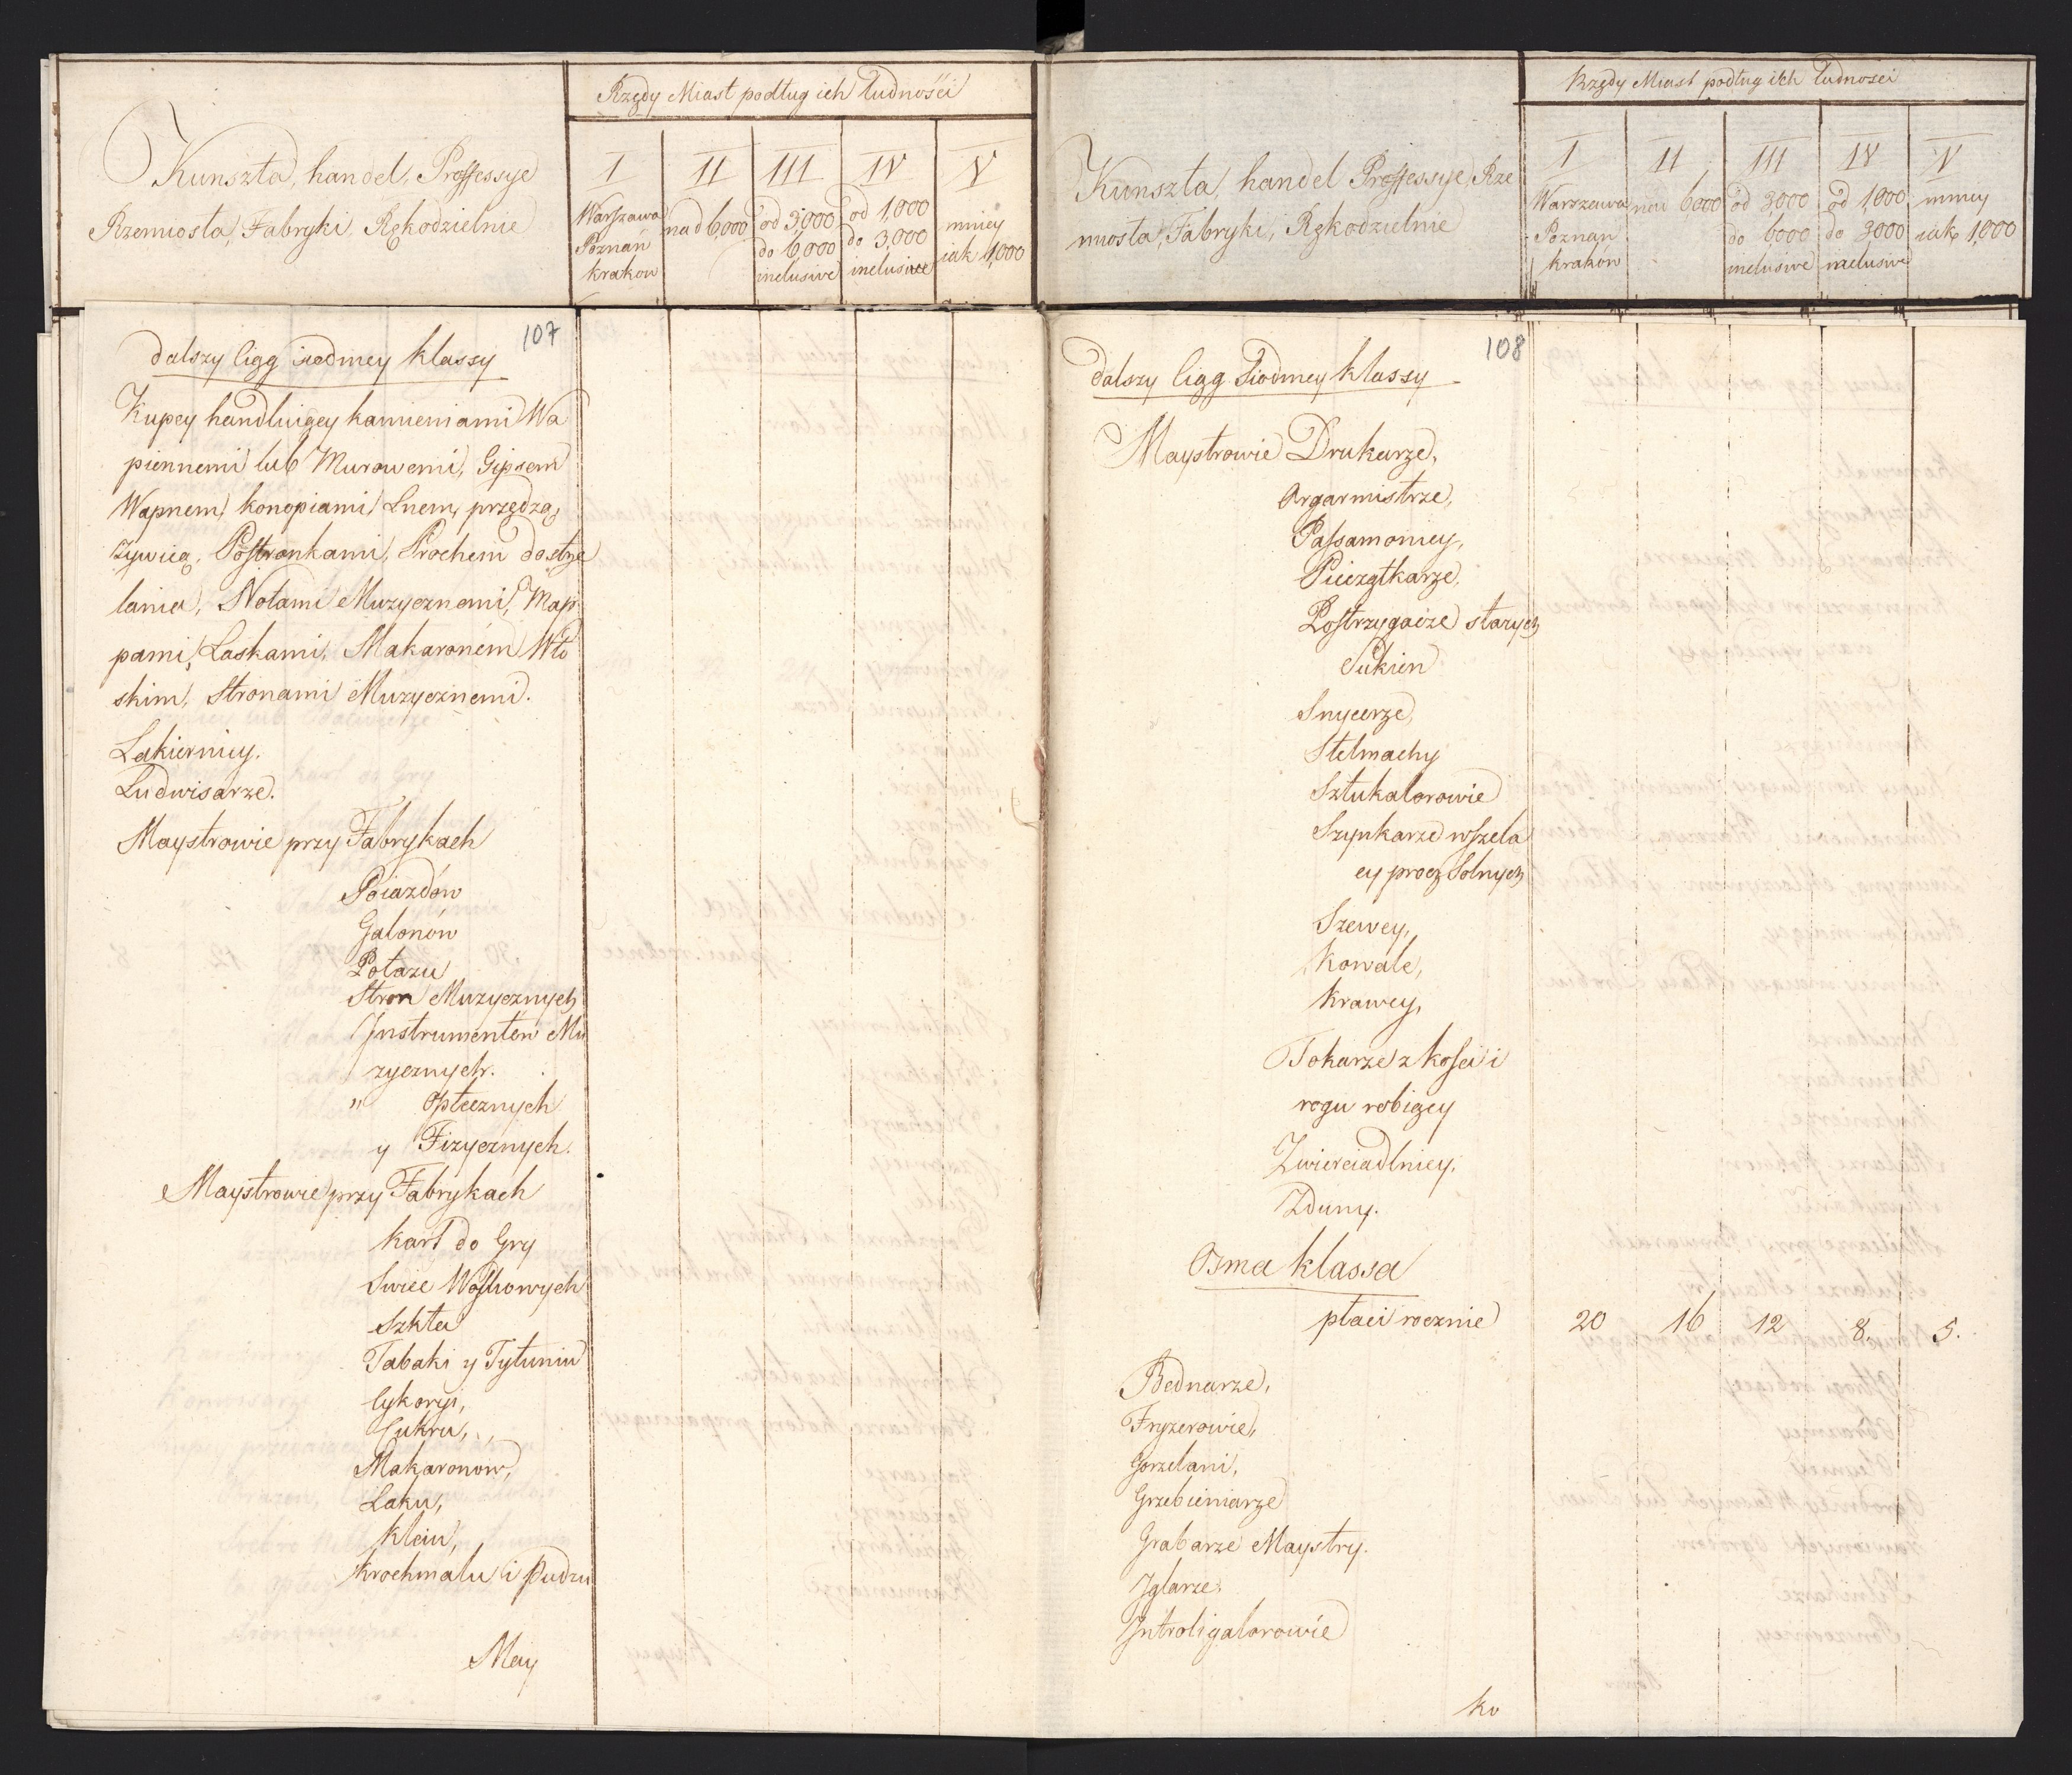 Kunszta, handel, Professye
Rzemiosła, Fabryki, Rękodzielnie
Rzędy Miast podług ich ludności
I
II
III
IV
V
Warszawa
Poznań
Krakow
nad 6,000
od 3,000
do 6,000
inclusive
od 1,000
do 3,000
inclusive
mniey
iak 1,000
107
dalszy Ciąg siodmey klassy
Kupcy handluiący kamieniami Wa
piennemi lub Murowemi, Gipsem
Wapnem, konopiami, Lnem, przędzą,
Zywicą, Postronkami, Prochem do strze
lania, Notami Muzycznemi, Map
pami, Laskami, Makaronem Wło
skim, Stronami Muzycznemi.
Lakiernicy.
Ludwisarze.
Maystrowie przy Fabrykach
Poiazdów
Galonów
Potazu
Stron Muzycznych
Instrumentów Mu
zycznych.
" Optycznych
y Fizycznych.
Maystrowie przy Fabrykach
Kart do Gry
Swiec Woskowych
Szkła
Tabaki y Tytuniu
Cykoryi,
Cukru,
Makaronow,
Laku,
Kleiu,
Krochmalu i Pudru
May
Kunszta, handel Professye, Rze
miosła, Fabryki, Rękodzielnie
Rzędy Miast podług ich ludności
I
II
III
IV
V
Warszawa
Poznań
Krakow
nad 6000
od 3,000
do 6000
inclusive
od 1,000
do 3000
inclusive
mniey
iak 1,000
108
dalszy Ciąg Siodmey klassy
Maystrowie Drukarze,
Organmistrze,
Passamonicy,
Pieczątkarze,
Postrzygacze starych
Sukien
Snycerze,
Stelmachy
Sztukatorowie
Szynkarze wszela
cy procz Solnych
Szewcy,
Kowale,
Krawcy,
Tokarze z kości i
rogu robiący
Zwierciadlnicy,
Zduny.
Osma klassa
płaci rocznie 20 16 12 8. 5.
Bednarze,
Fryzerowie,
Gorzelani,
Grzebieniarze
Grabarze Maystry.
Iglarze
Introligatorowie
Ko